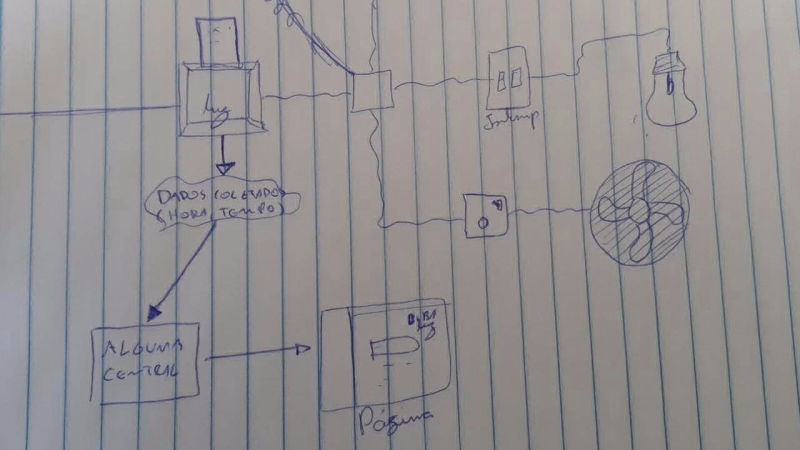 luz
Interrup
DADOS COLETADOS
(HORA, TEMPO)
ALGUMA
CENTRAL
Página